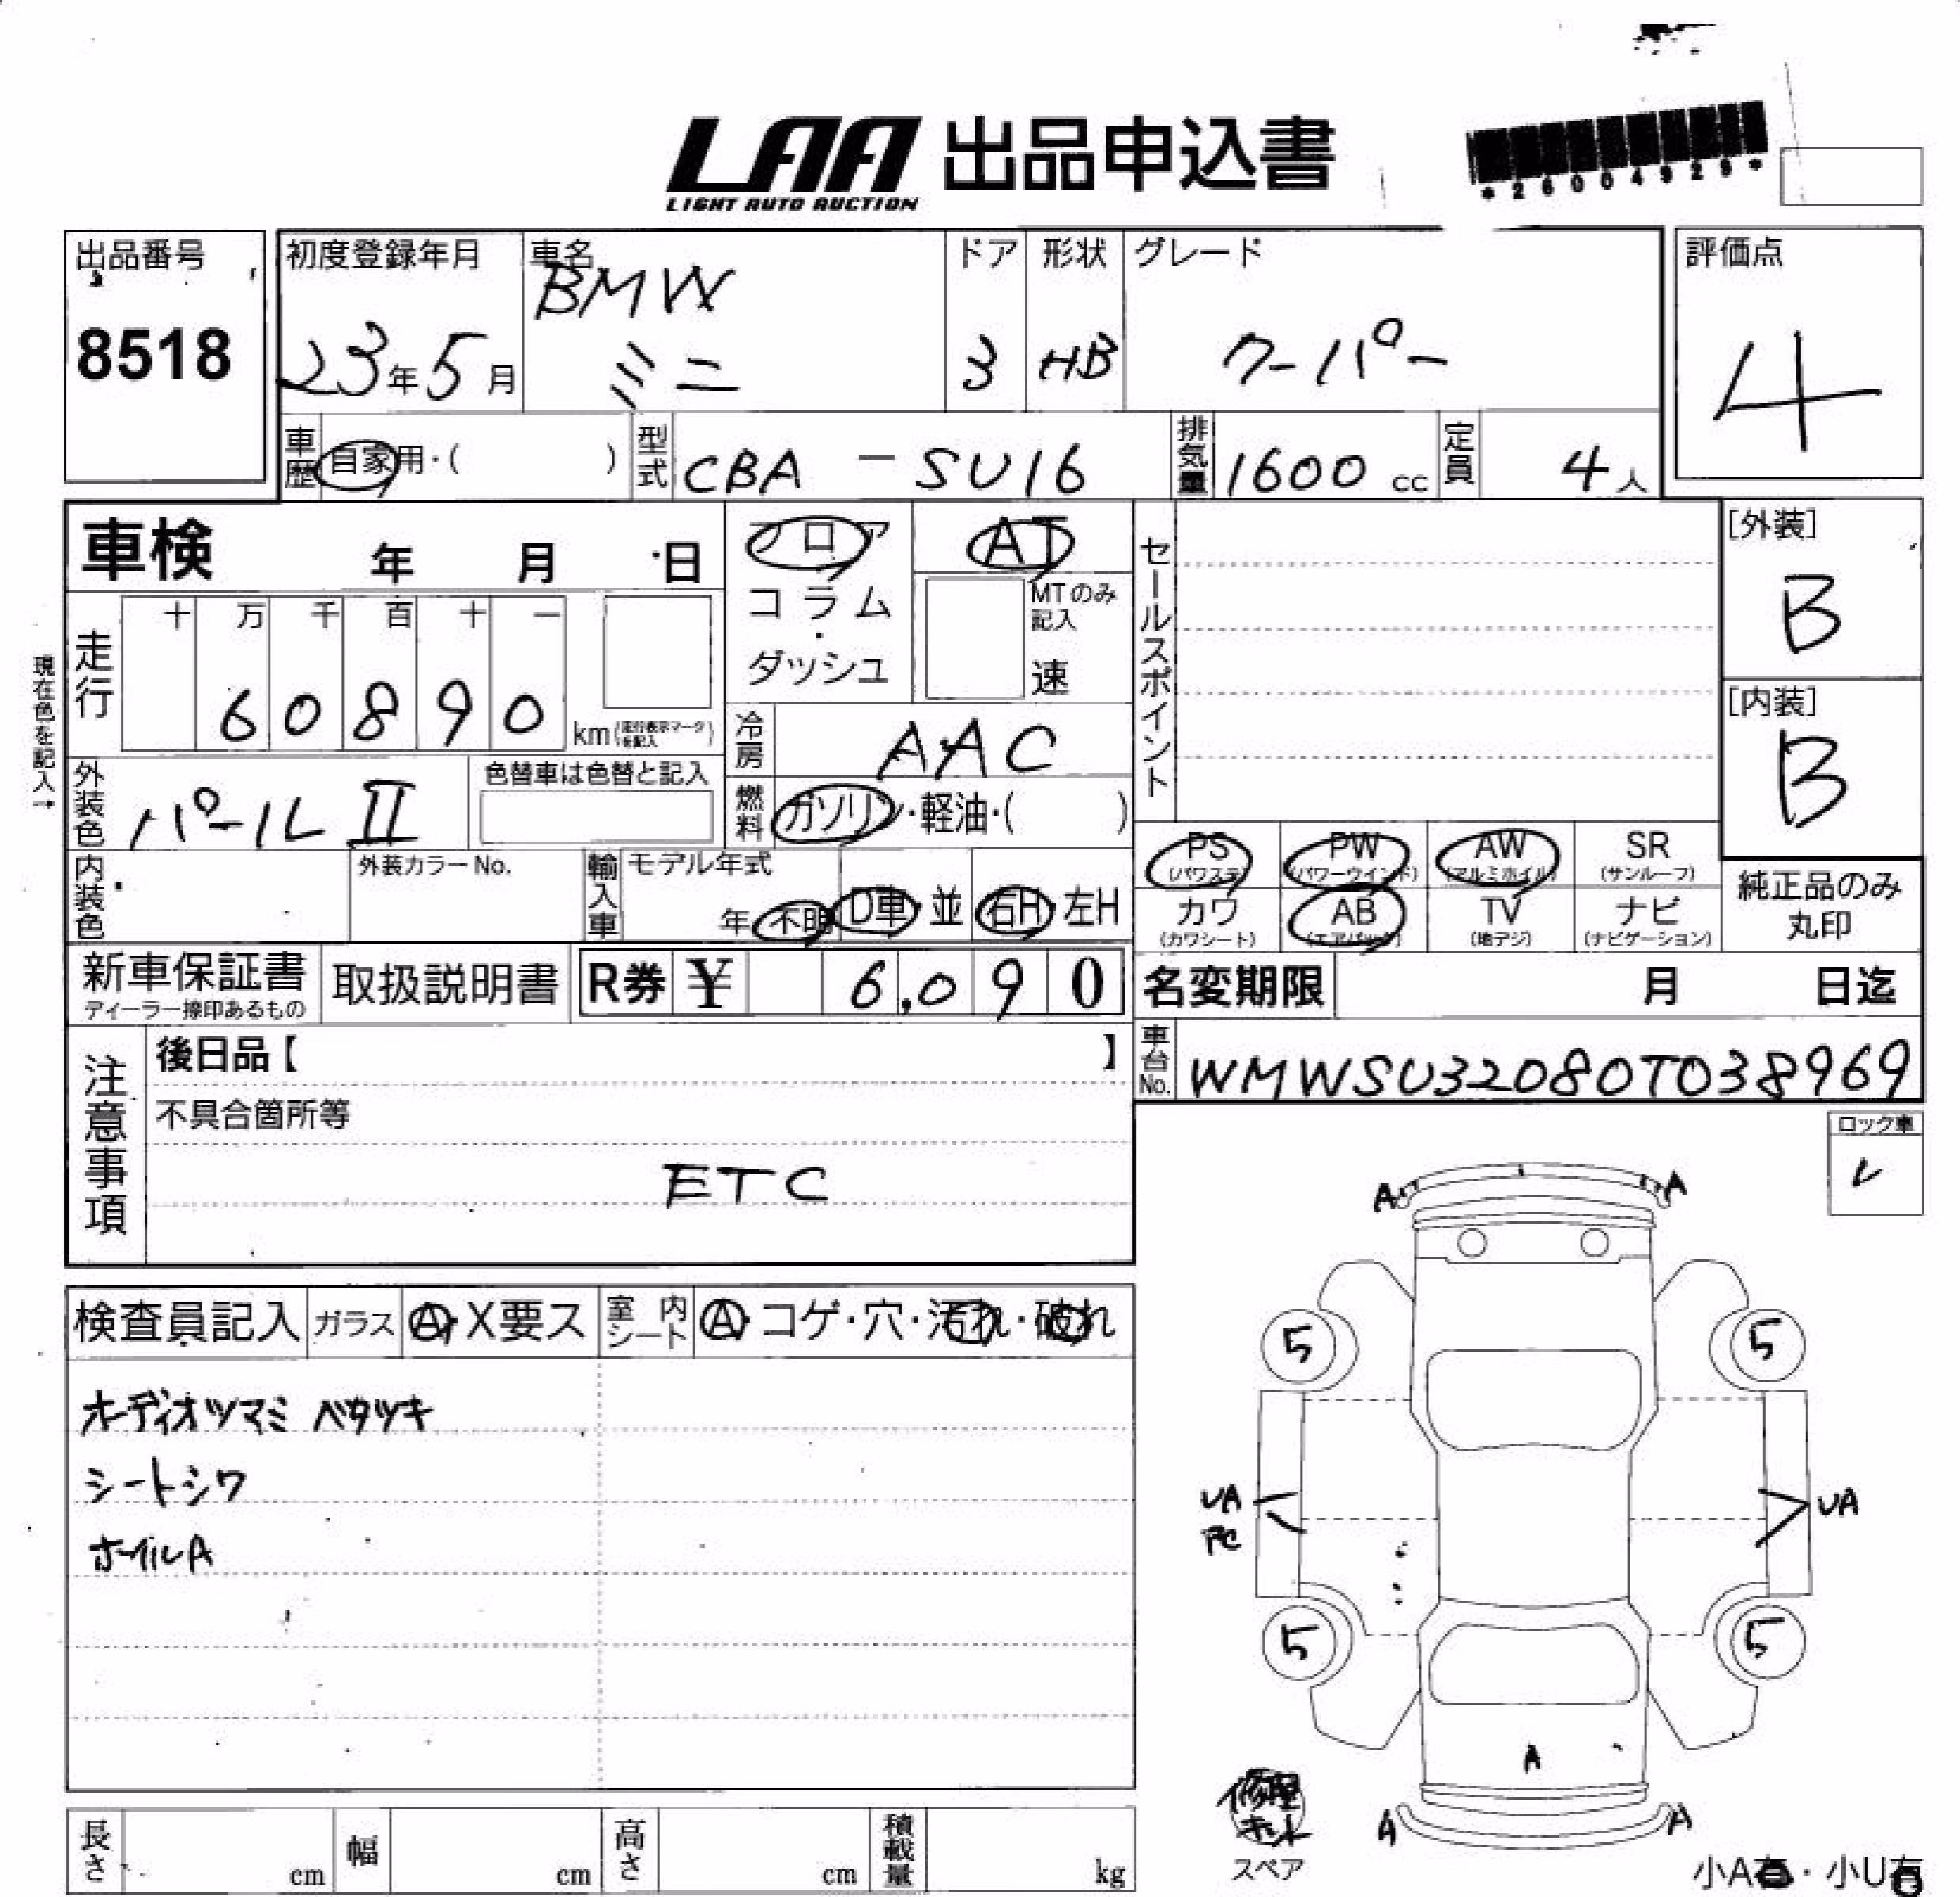 LAA 出品申込書
LIGHT AUTO AUCTION
*26004929*
出品番号
8518
初度登録年月
23年5月
車名
BMW
ミニ
ドア
3
形状
HB
グレード
クーパー
評価点
4
車歴 自家用・( )
型式 CBA - SU16
排気量 1600 cc
定員 4人
車検 年 月 日
フロア
コラム
・
ダッシュ
AT
MTのみ
記入
速
セールスポイント
[外装]
B
[内装]
B
現在色を記入→
走行
十 万 千 百 十 一
6 0 8 9 0 km (走行表示マークを記入)
冷房 AAC
外装色 パールII
色替車は色替と記入
燃料 ガソリン・軽油・( )
内装色
外装カラーNo.
輸入車
モデル年式
年 不明 D車・並 右H・左H
PS (パワステ)
PW (パワーウインド)
AW (アルミホイル)
SR (サンルーフ)
カワ (カワシート)
AB (エアバック)
TV (地デジ)
ナビ (ナビゲーション)
純正品のみ
丸印
新車保証書
ディーラー捺印あるもの
取扱説明書
R券 ¥ 6,090
名変期限 月 日迄
車台No. WMWSU32080T038969
注意事項
後日品【 】
不具合箇所等
ETC
ロック車
レ
検査員記入 ガラス A・X要ス 室内シート A・コゲ・穴・汚れ・破れ
オーディオツマミ ベタツキ
シートシワ
ホイルA
A A
5 5
UA UA
PC
5 5
A
A A
修理
キット
スペア
小A有・小U有
長さ cm 幅 cm 高さ cm 積載量 kg